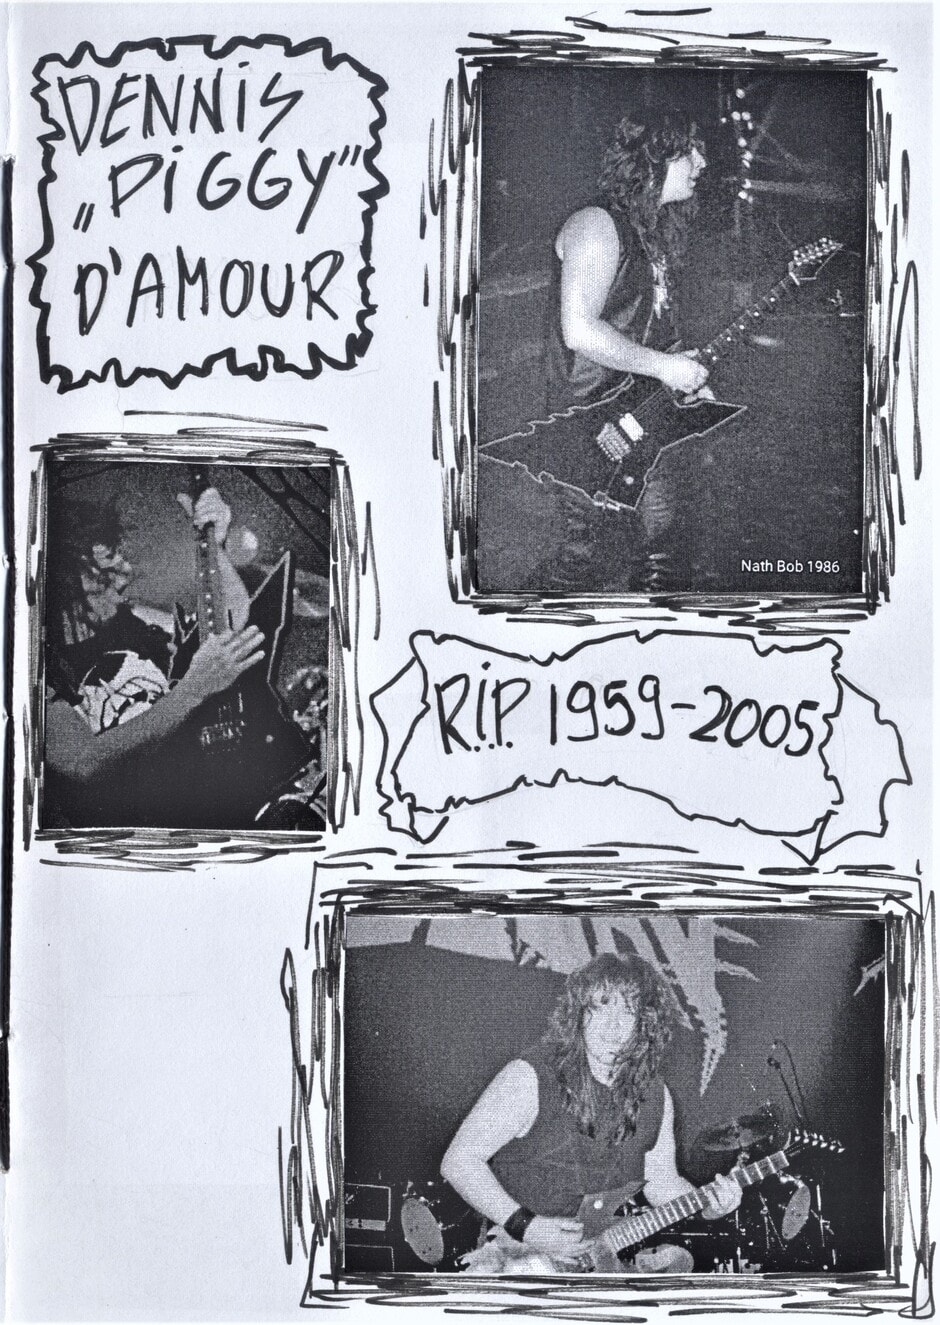 DENNiS
„PiGGY”
D'AMOUR
Nath Bob 1986
R.i.P. 1959-2005